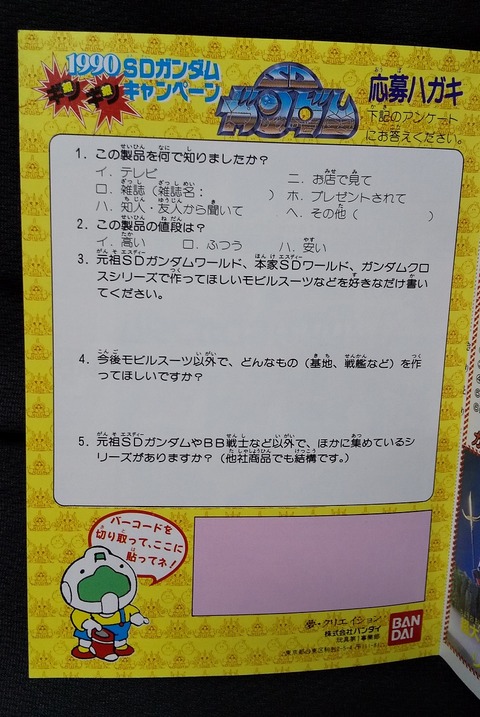 1990 SDガンダム
ギンギンキャンペーン
SDガンダム
応募ハガキ
下記のアンケート
にお答えください。
1. この製品を何で知りましたか？
イ. テレビ
ニ. お店で見て
ロ. 雑誌（雑誌名： ）
ホ. プレゼントされて
ハ. 知人・友人から聞いて
ヘ. その他（ ）
2. この製品の値段は？
イ. 高い ロ. ふつう ハ. 安い
3. 元祖SDガンダムワールド、本家SDワールド、ガンダムクロ
スシリーズで作ってほしいモビルスーツなどを好きなだけ書い
てください。
4. 今後モビルスーツ以外で、どんなもの（基地、戦艦など）を作
ってほしいですか？
5. 元祖SDガンダムやBB戦士など以外で、ほかに集めているシ
リーズがありますか？（他社商品でも結構です。）
バーコードを
切り取って、ここに
貼ってネ！
夢・クリエイション
株式会社バンダイ
BAN
DAI